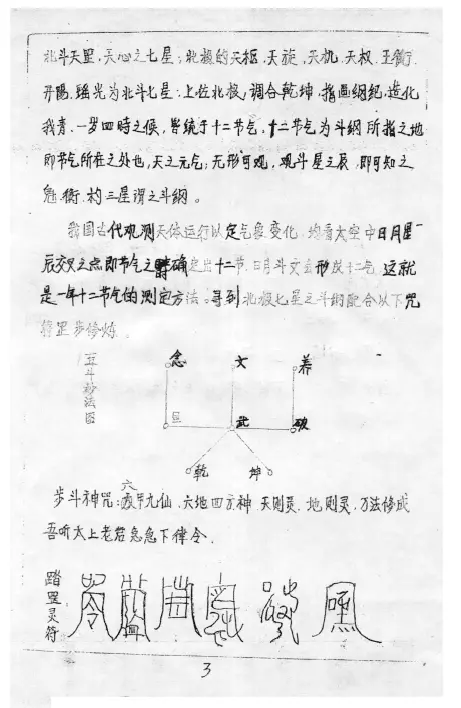 北斗天罡,天心之七星;北极的天枢.天旋,天机.天权.玉衡.
开陽.瑶光为北斗七星;上位北极,调合乾坤,指画纲纪,造化
我青.一岁四時之候,皆统于十二节气,十二节气为斗綱所指之地
即节气所在之处也,天之元气;无形可观,观斗星之辰,即可知之
魁.衡.杓三星谓之斗綱。
我国古代观测天体运行以定气象变化,均看太空中日月星
辰交叉之点即节气之确定出十二节.日月斗文会形成十二气.这就
是一年十二节气的测定方法。寻到北极七星之斗綱配合以下咒
符罡步修炼。
五斗秒法図
念 文 养
旦 武 破
乾 坤
六
步斗神咒:甲九仙.六地四方神 天则灵.地则灵.万法修成
吾听太上老君急急下律令.
踏罡灵符
3